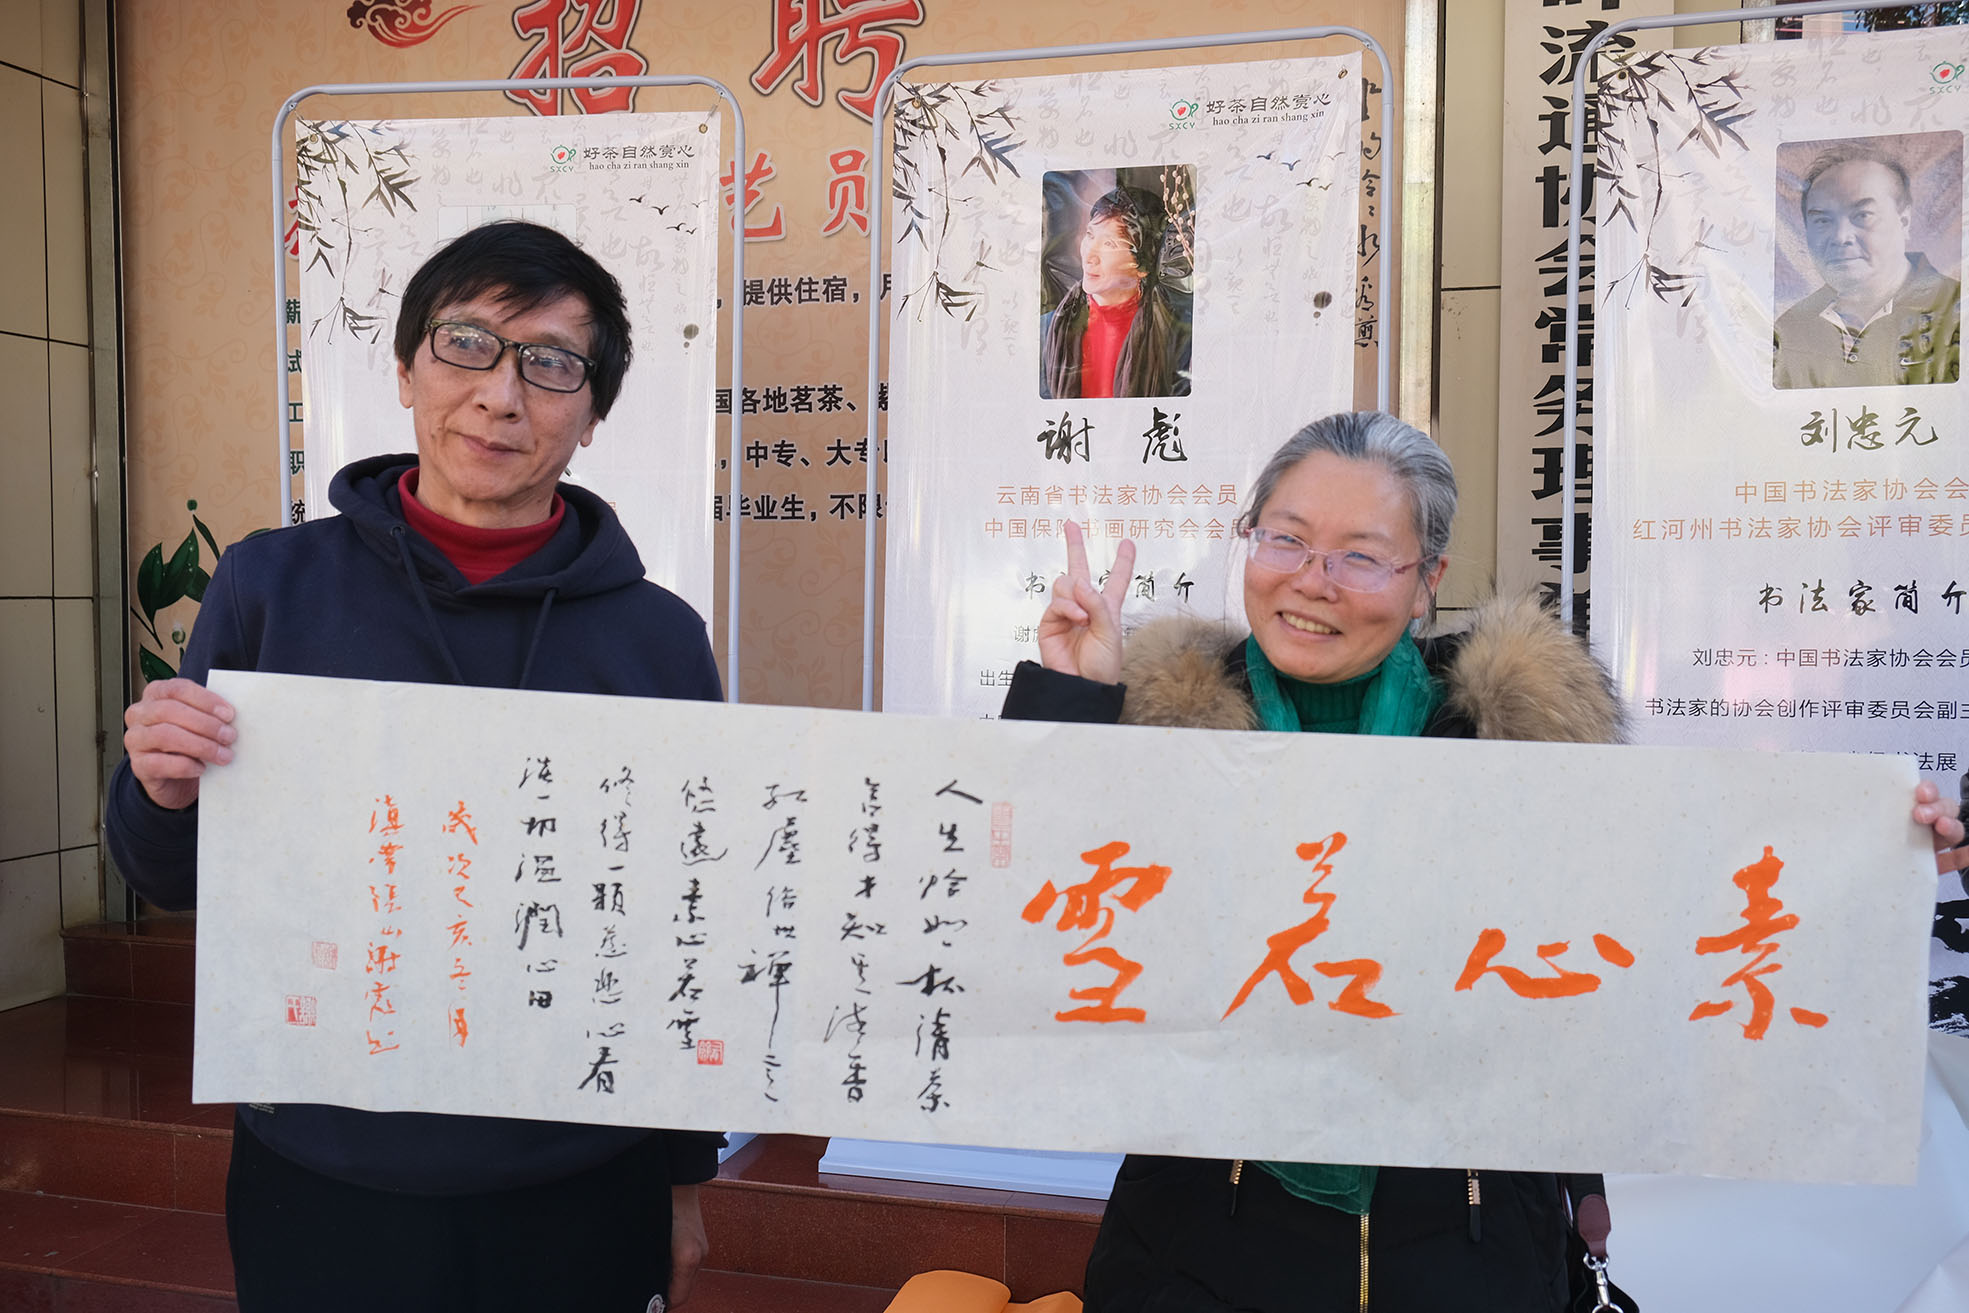 招聘
艺员
，提供住宿，月
国各地茗茶、紫
，中专、大专
届毕业生，不限
薪
试
工
职
统
好茶自然赏心
hao cha zi ran shang xin
SXCY
好茶自然赏心
hao cha zi ran shang xin
SXCY
谢彪
云南省书法家协会会员
中国保险书画研究会会员
书 家简介
谢
出生
SXCY
刘忠元
中国书法家协会会
红河州书法家协会评审委员
书法家简介
刘忠元：中国书法家协会会员
书法家的协会创作评审委员会副主
书法展
流通协会常务理事
素心若雪
人生恰如一杯清茶
言得才知其清香
红尘俗世禅之
悠远素心若雪
修得一颗慈悲心看
淡一切温润心田
岁次己亥
滇南 山谢彪